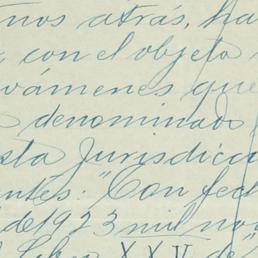 nos atrás, ha
, con el objeto
vámenes que
denominado
sta Jurisdicci
ntes: "Con fech
de 1923 mil nov
Libro XXV de "